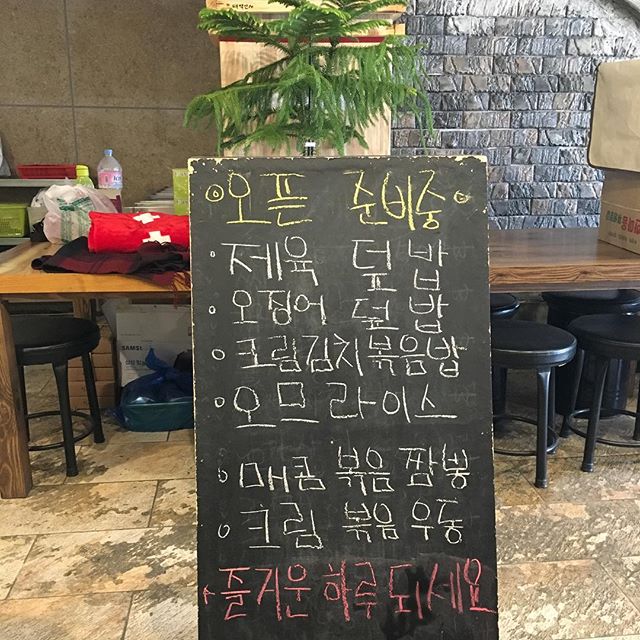 오픈 준비중
제육 덮밥
오징어 덮밥
크림김치볶음밥
오므라이스
매콤 볶음 짬뽕
크림 볶음 우동
즐거운 하루 되세요
SAMSUNG